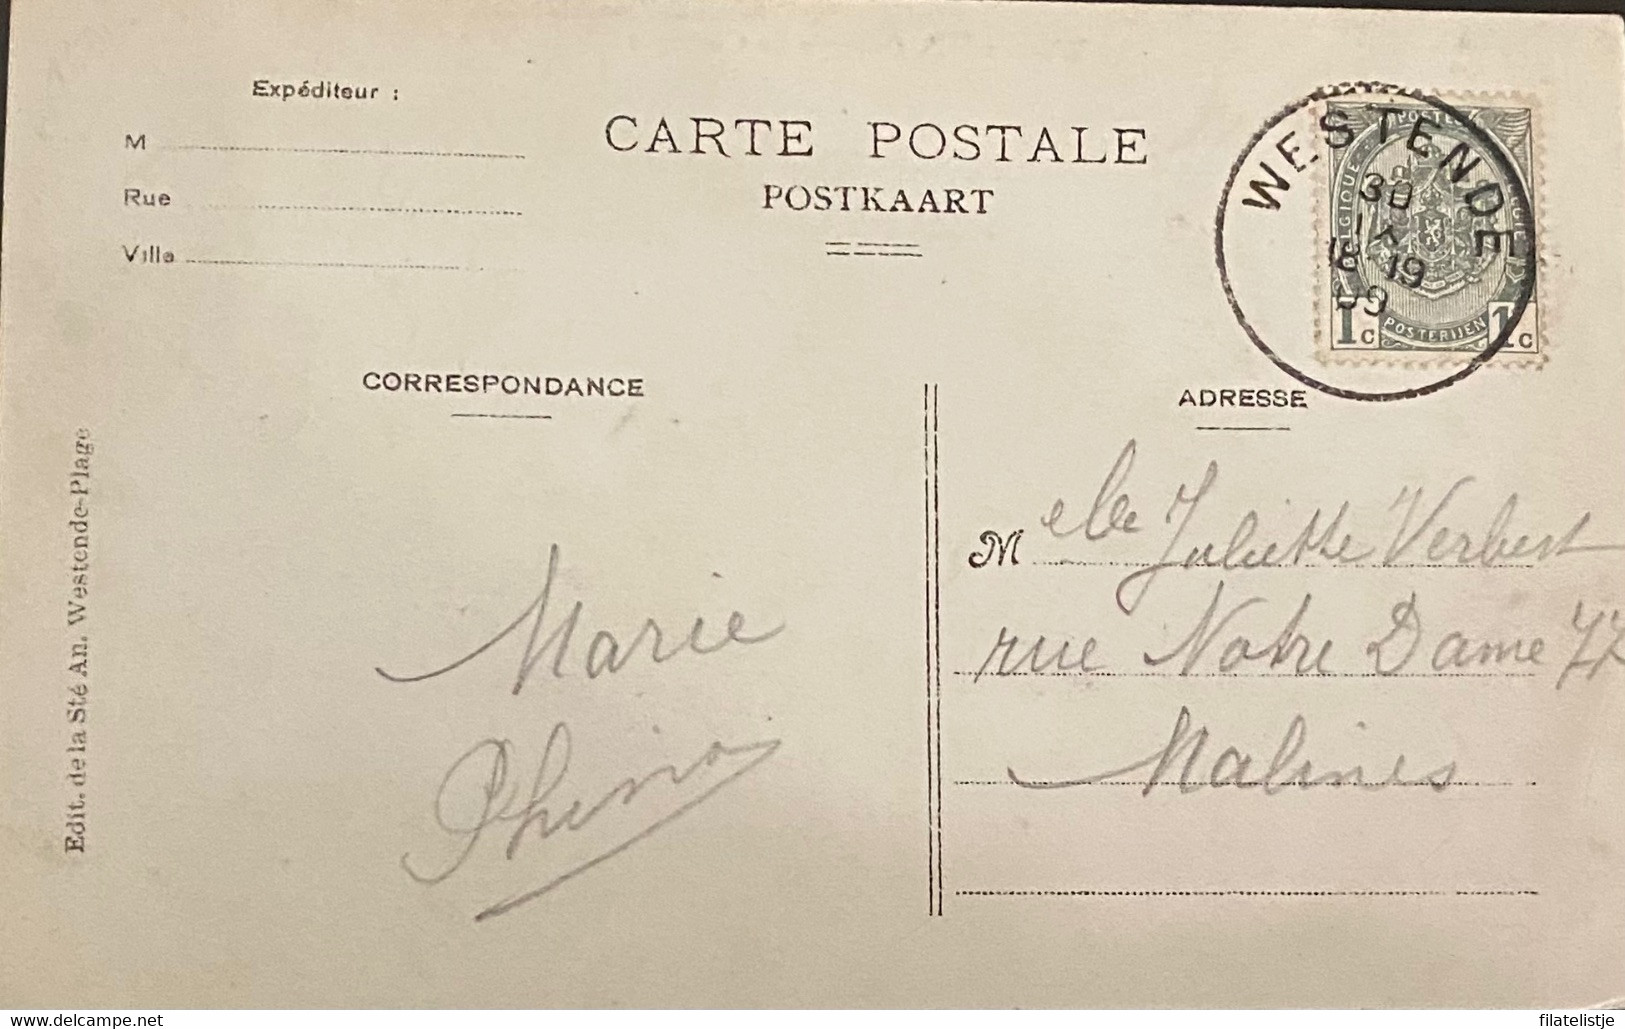 Expéditeur :
M
Rue
Ville
CARTE POSTALE
POSTKAART
WESTENDE
30
18-19
09
POSTES
BELGIQUE
BELGIE
POSTERIJEN
1c 1c
CORRESPONDANCE
ADRESSE
Edit. de la Sté An. Westende-Plage
Marie
M elle Juliette Verbest
rue Notre Dame 77
Malines
www.delcampe.net
filatelistje